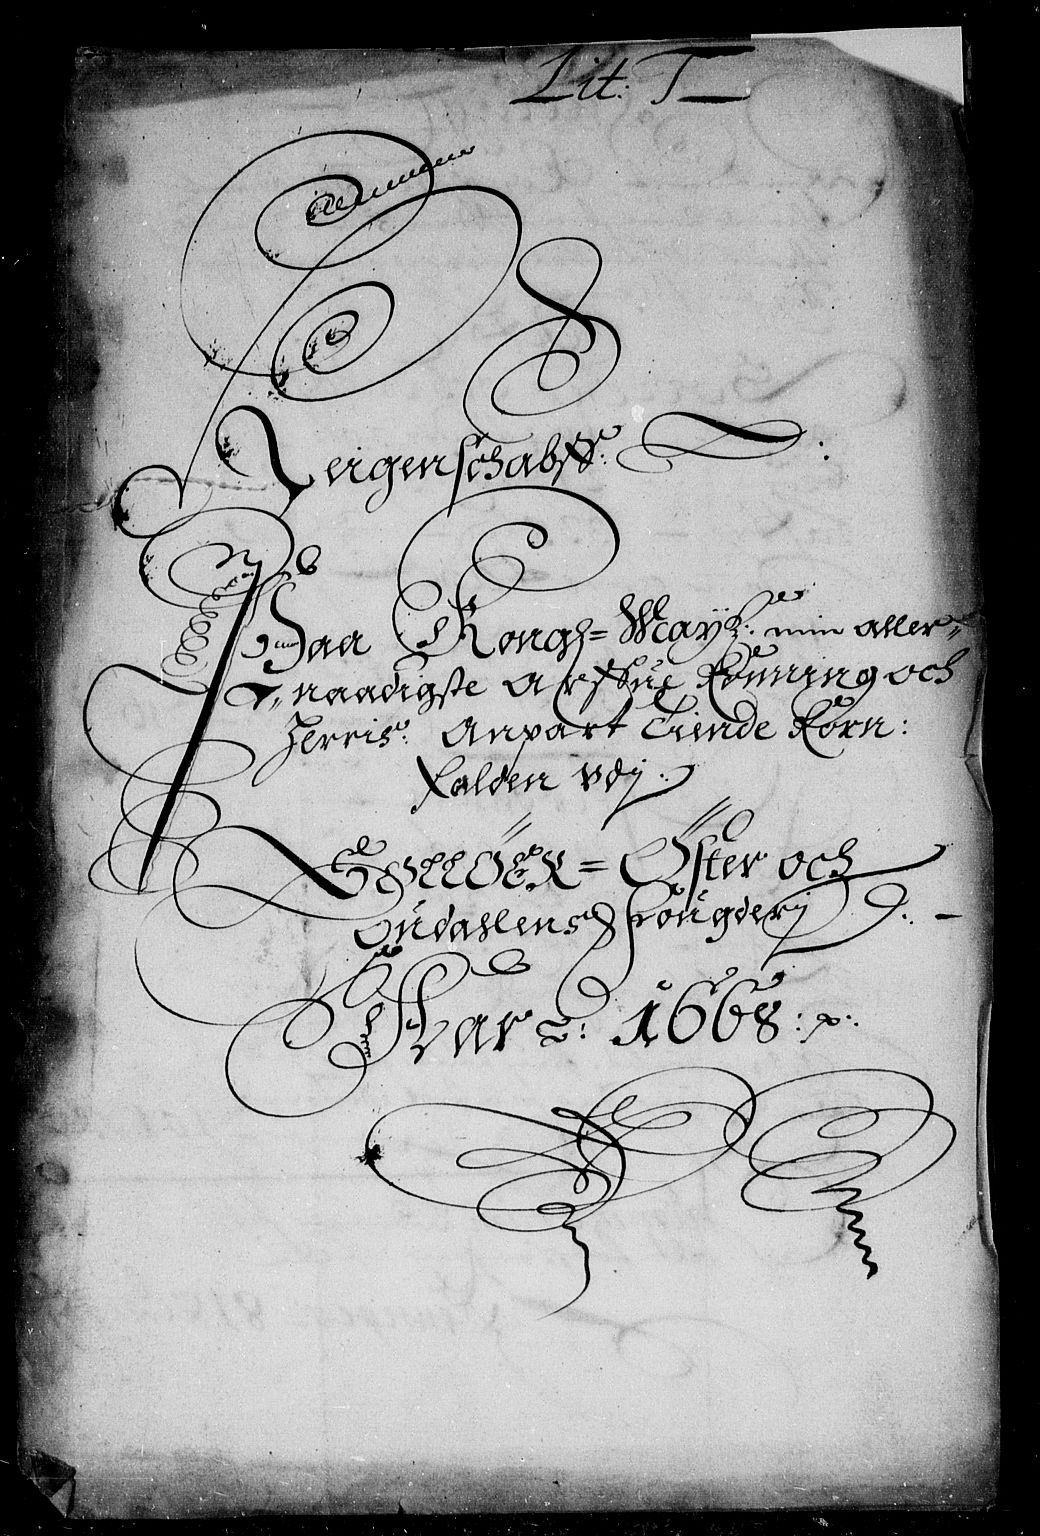 Lit: T
Reigenschabs:
Paa Kongs= Mayß: min aller=
naadigste arffue Konning och
Herris: anpart Tiende Korn:
falden vdj:
Soløer= Øster och
Oudalens fougderj
Aar: 1668: